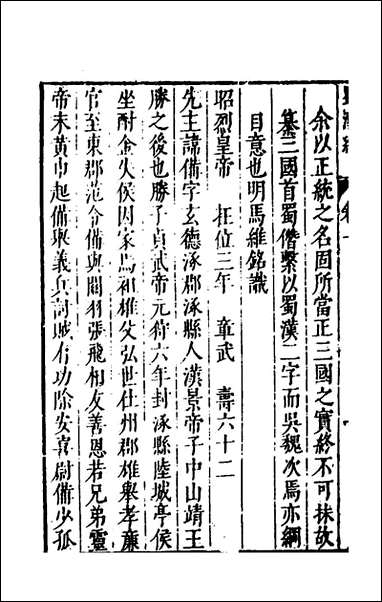 余以正統之名固所當正三國之實終不可抹故
纂三國首蜀僭繫以蜀漢二字而吳魏次焉亦綱
目意也明馬維銘識
昭烈皇帝 在位三年 章武 壽六十二
先主諱備字玄德涿郡涿縣人漢景帝子中山靖王
勝之後也勝子貞武帝元狩六年封涿縣陸城亭侯
坐酎金失侯因家焉祖雄父弘世仕州郡雄舉孝廉
官至東郡范令備與關羽張飛相友善恩若兄弟靈
帝末黃巾起備與義兵討賊有功除安喜尉備少孤